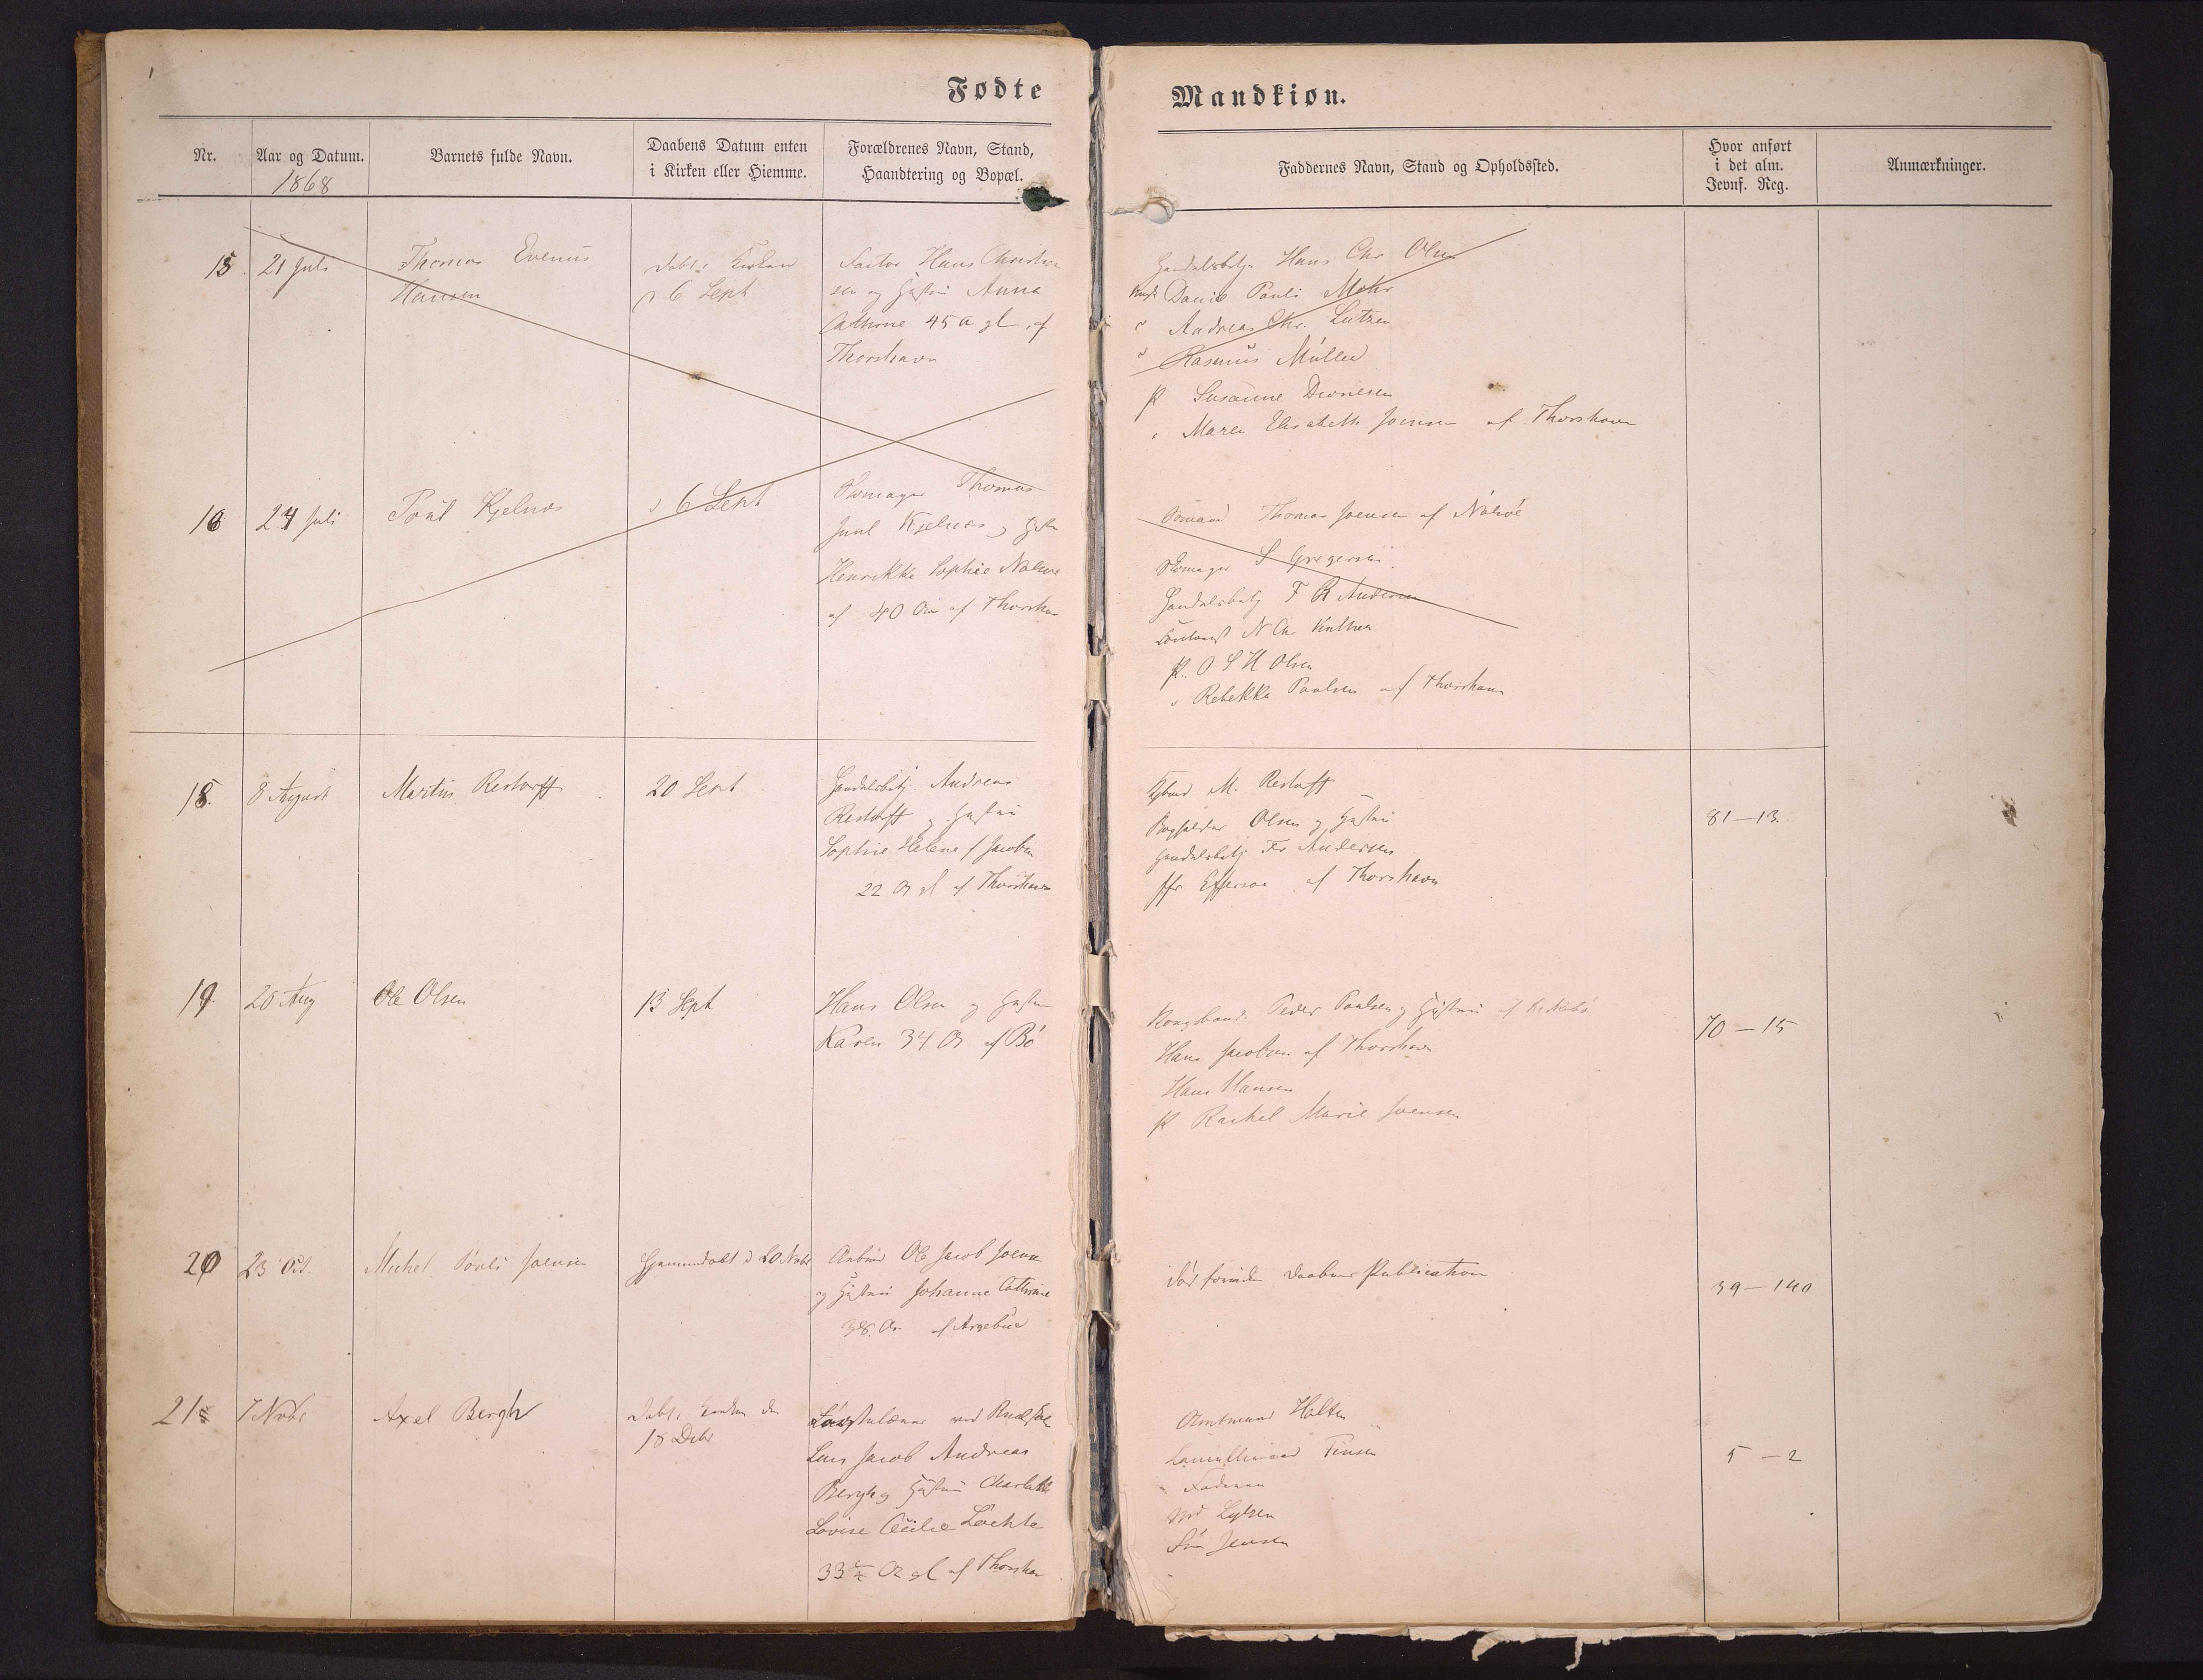 Fødte
Mandkiøn.
Nr.
Aar og Datum.
1868
Barnets fulde Navn.
Daabens Datum enten
i Kirken eller Hiemme.
Forældrenes Navn, Stand,
Haandtering og Bopæl.
Faddernes Navn, Stand og Opholdssted.
Hvor anført
i det alm.
Jevnf. Reg.
Anmærkninger.
15
21 Juli
Thomas Evenus
Hansen
Døbt i Kirken
6 Sept
Factor Hans Christian
og Hustru Anna
Cathrine 45 A gl af
Thorshavn
Handelsbetj Hans Chr Olsen
David Pauli Mohr
Andreas Chr. Lutzen
Rasmus Müller
P Susanne
Maren Elisabeth Joensen af Thorshavn
16
24 Juli
Poul Kjelnæs
6 Sept
Skomager Thomas
Juul Kjelnæs og Hustru
Henrikke Sophie Nolsøe
40 Aar af Thorshavn
Thomas Joensen af Nolsøe
Skomager S Gregersen
Handelsbetj F R Andersen
N Chr
P. O S H Olsen
Rebekka Poulsen af Thorshavn
18
8 August
Martin Restorff
20 Sept
Handelsbetj. Andreas
Restorff og Hustru
Sophie Helene f Jacobsen
22 A gl af Thorshavn
M. Restorff
Bogholder Olsen og Hustru
Handelsbetj Fr Andersen
Jfr Effersøe af Thorshavn
81 — 13.
19
20 Aug
Ole Olsen
13 Sept
Hans Olsen og Hustru
Karen 34 A af Bø
Kongsbond. Peder Poulsen og Hustru af
Hans Jacobsen af Thorshavn
Hans Hansen
P Rachel Marie Joensen
70 — 15
20
23 Oct.
Michel Pouli Joensen
Hjemmedøbt d 20 Novbr
Ole Jacob Joensen
og Hustru Johanne Cathrine
38 A. af Argebøe
Død forinden Daabens Publication
39 — 140
21
7 Novbr
Axel Bergh
Døbt i Kirken den
18 Decbr
ved
Lars Jacob Andreas
Bergh og Hustru Charlotte
Lovise Cecilie Lochte
33 A gl af Thorshavn
Amtmand Holten
Finsen
Faderen
Md Lützen
Jensen
5 — 2